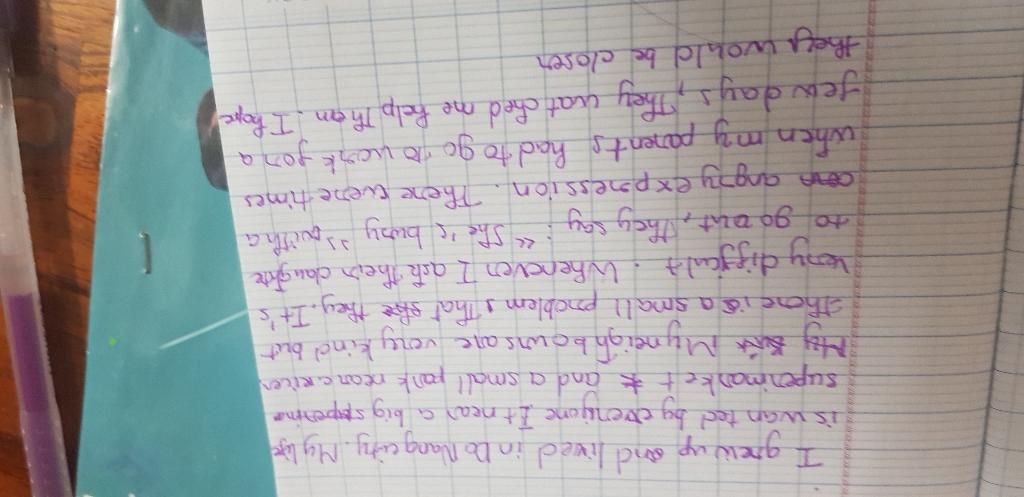 I grew up and lived in Da Nang city. My life
is wanted by everyone. It near a big
supermarket and a small park near a river
My neighbours are very kind but
there is a small problem that they. It's
very difficult. Whenever I ask their daughte
to go out, they say: "She's busy" with a
angry expression. There were times
when my parents had to go to work for a
few days, They watched me help them. I hope
they would be closer